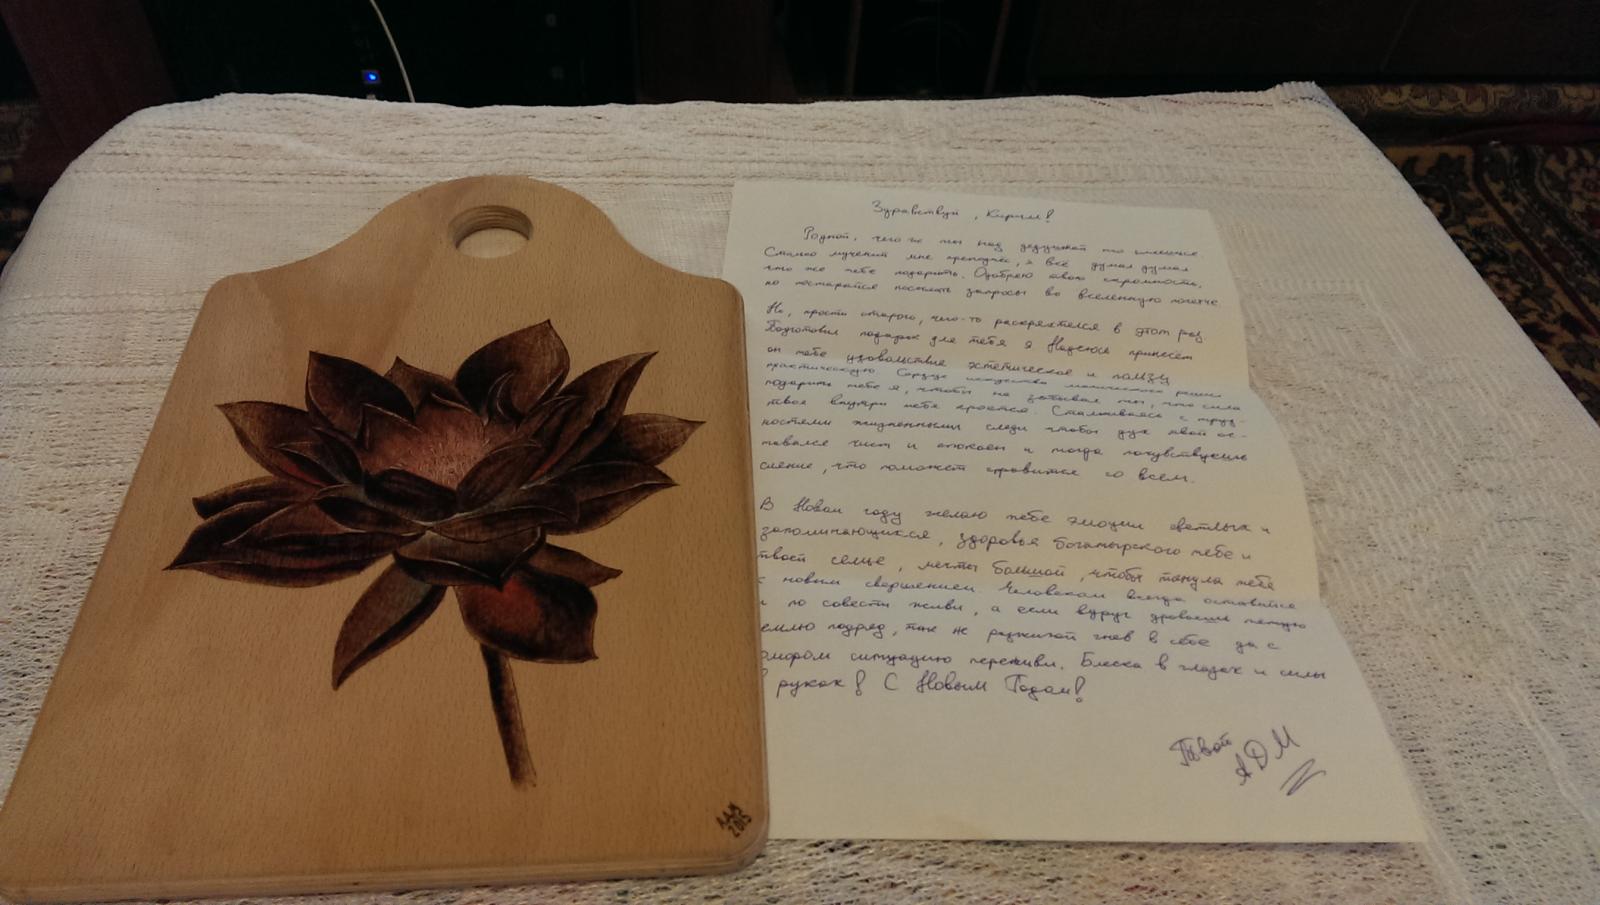 Здравствуй, Кирилл!
Родной, чего же ты над дедушкой то
Столько мучений мне преподнёс, я всё думал думал
что же тебе подарить. Одобряю твою скромность,
но постарайся посылать запросы во вселенную почетче.
Но, прости старого, чего-то раскряхтелся в этот раз.
Подготовил подарок для тебя я Надеюсь принесёт
он тебе удовольствие эстетическое и пользу
практическую. Сердце искусства решил
подарить тебе я, чтобы не забывал ты, что сила
твоя внутри тебя кроется. Сталкиваясь с труд-
ностями жизненными следи чтобы дух твой ос-
тавался чист и спокоен и тогда почувствуешь
сияние, что поможет справится со всем.
В Новом году желаю тебе эмоций светлых и
запоминающихся, здоровья богатырского тебе и
твоей семье, мечты большой, чтобы тянула тебя
к новым свершением. Человеком всегда оставайся
и по совести живи, а если вдруг
землю подряд, так не разжигай гнев в себе да с
юмором ситуацию переживи. Блеска в глазах и силы
в руках! С Новым Годом!
Твой
АДМ
АДМ
2015